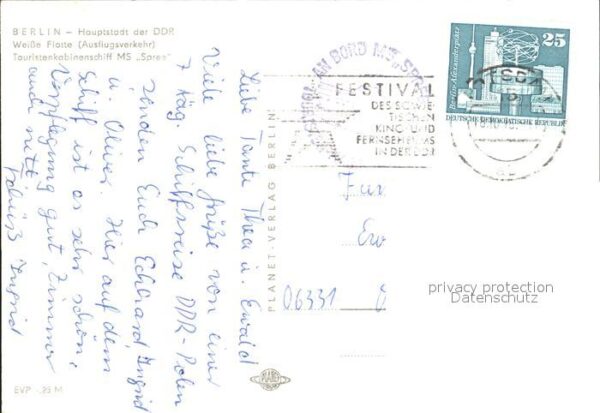 BERLIN – Hauptstadt der DDR
Weiße Flotte (Ausflugsverkehr)
Touristenkabinenschiff MS „Spree"
Liebe Tante Thea u. Ewald
Viele liebe Grüße von einer
7 täg. Schiffsreise DDR-Polen
senden Euch Eckhard, Ingrid
u. Oliver. Hier auf dem
Schiff ist es sehr schön,
Verpflegung gut, Zimmer
auch nett.
Ingrid
PLANET-VERLAG BERLIN
AN BORD MS
FESTIVAL
DES SOWJE-
TISCHEN
KINO- UND
FERNSEHFILMS
IN DER DDR
POTSDAM
25
Berlin-Alexanderplatz
DEUTSCHE DEMOKRATISCHE REPUBLIK
Fam
Ew
06331
privacy protection
Datenschutz
EVP -,25 M